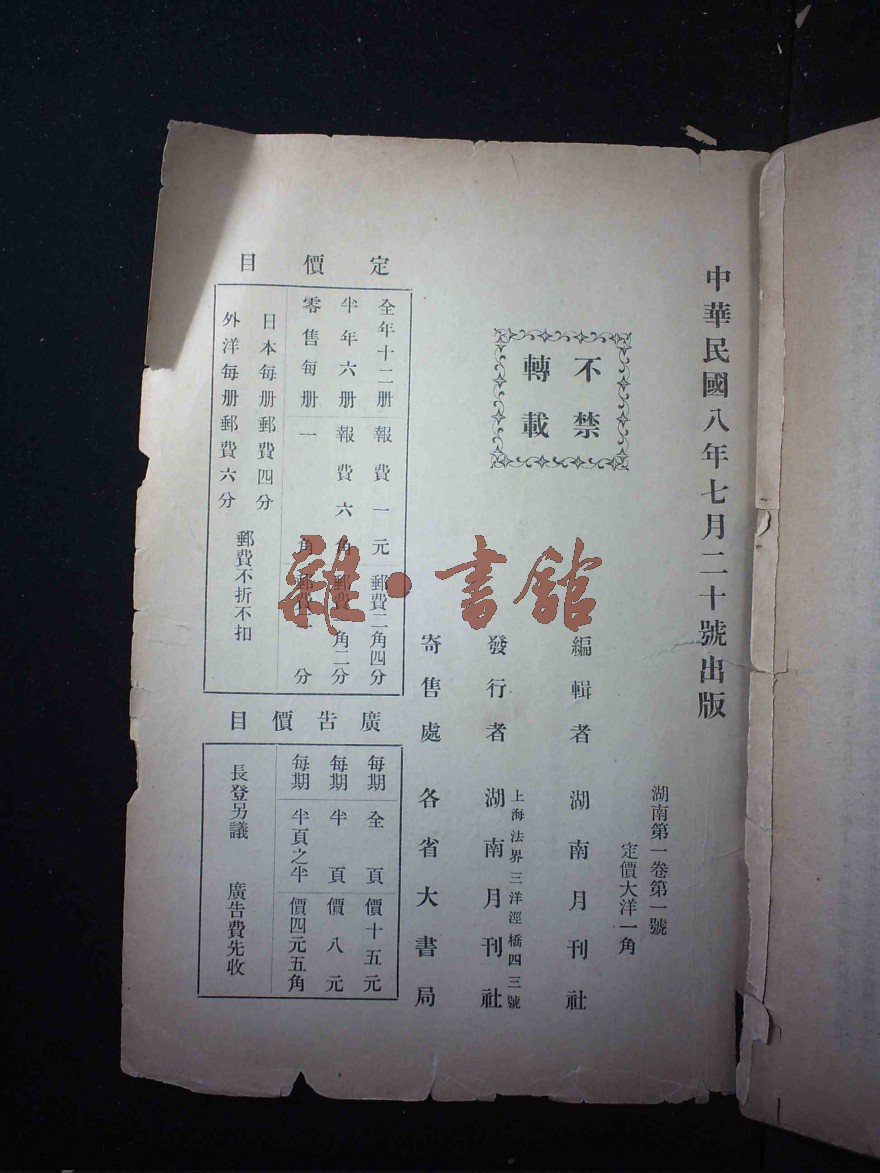 中華民國八年七月二十號出版
湖南第一卷第一號
定價大洋一角
不禁
轉載
編輯者 湖南月刊社
上海法界三洋涇橋四三號
發行者 湖南月刊社
寄售處 各省大書局
定價目
全年十二册 報費一元 郵費二角四分
半年六册 報費六角 郵費一角二分
零售每册 一角 郵費 分
日本每册郵費四分
外洋每册郵費六分
郵費不折不扣
廣告價目
每期 全頁 價十五元
每期 半頁 價八元
每期 半頁之半 價四元五角
長登另議 廣告費先收
雜·書館